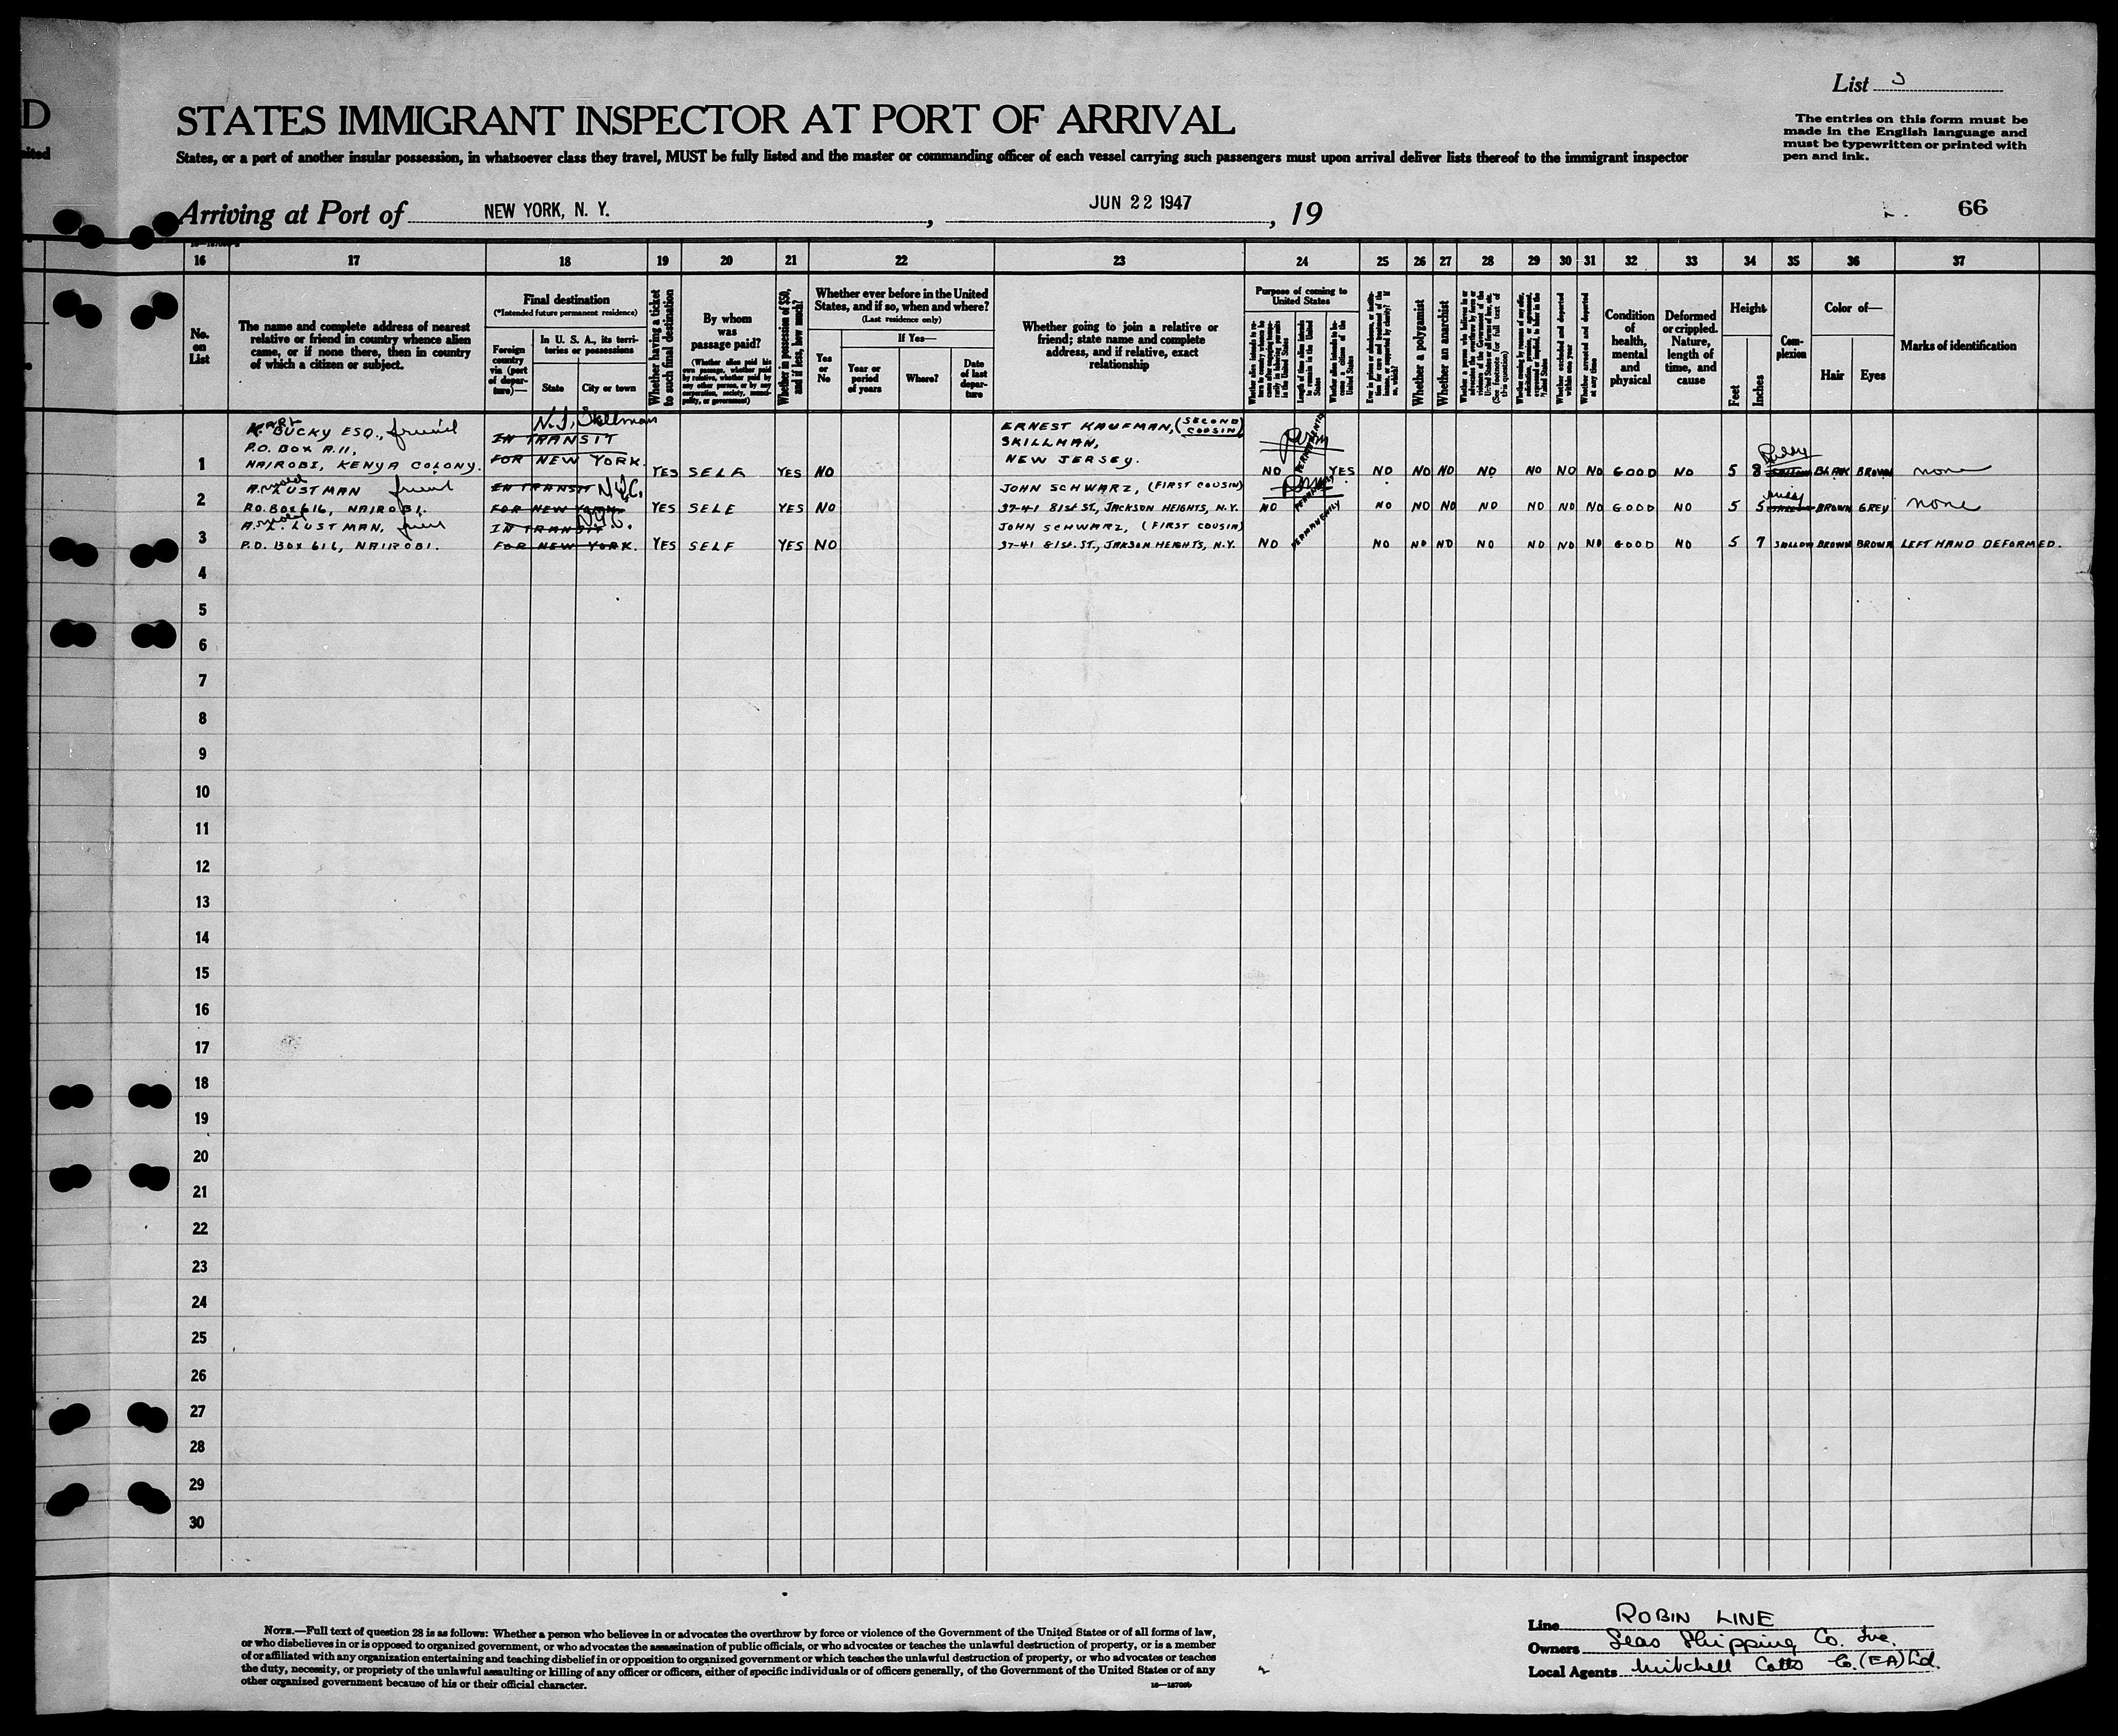 D
List 3
STATES IMMIGRANT INSPECTOR AT PORT OF ARRIVAL
The entries on this form must be
made in the English language and
must be typewritten or printed with
pen and ink.
States, or a port of another insular possession, in whatsoever class they travel, MUST be fully listed and the master or commanding officer of each vessel carrying such passengers must upon arrival deliver lists thereof to the immigrant inspector
Arriving at Port of NEW YORK, N. Y. , JUN 22 1947 , 19
66
16 17 18 19 20 21 22 23 24 25 26 27 28 29 30 31 32 33 34 35 36 37
No.
on
List
The name and complete address of nearest
relative or friend in country whence alien
came, or if none there, then in country
of which a citizen or subject.
Final destination
(*Intended future permanent residence)
Foreign
country
via (port
of depar-
ture)—
In U. S. A., its terri-
tories or possessions
State
City or town
Whether having a ticket
to such final destination
By whom
was
passage paid?
(Whether alien paid his
own passage, whether paid
by relative, whether paid by
any other person, or by any
corporation, society, munici-
pality, or government)
Whether in possession of $50,
and if less, how much?
Whether ever before in the United
States, and if so, when and where?
(Last residence only)
Yes
or
No
If Yes—
Year or
period
of years
Where?
Date
of last
depar-
ture
Whether going to join a relative or
friend; state name and complete
address, and if relative, exact
relationship
Purpose of coming to
United States
Length of time alien intends
to remain in the United
States
Whether alien intends to be-
come a citizen of the
United States
Whether a polygamist
Whether an anarchist
(See footnote for full text of
this question)
Whether excluded and deported
within one year
Whether arrested and deported
at any time
Condition
of
health,
mental
and
physical
Deformed
or crippled.
Nature,
length of
time, and
cause
Height
Feet
Inches
Com-
plexion
Color of—
Hair
Eyes
Marks of identification
N.J. Skillman
K. BUCKY ESQ., friend IN TRANSIT ERNEST KAUFMAN, (SECOND COUSIN)
P.O. BOX A.11, FOR NEW YORK. SKILLMAN,
1 NAIROBI, KENYA COLONY. YES SELF YES NO NEW JERSEY. NO PERMANENTLY YES NO NO NO NO NO NO NO GOOD NO 5 8 BLAK BROWN none
A. LUSTMAN friend IN TRANSIT N.Y.C. JOHN SCHWARZ, (FIRST COUSIN)
2 P.O. BOX 616, NAIROBI. FOR NEW YORK. YES SELF YES NO 37-41 81st ST, JACKSON HEIGHTS, N.Y. NO NO NO NO NO NO NO NO GOOD NO 5 5 BROWN GREY none
A. L. LUSTMAN, friend IN TRANSIT N.Y.C. JOHN SCHWARZ, (FIRST COUSIN)
3 P.O. BOX 616, NAIROBI. FOR NEW YORK. YES SELF YES NO 37-41 81st. ST., JAKSON HEIGHTS, N.Y. NO PERMANENTLY NO NO NO NO NO NO NO GOOD NO 5 7 SALLOW BROWN BROWN LEFT HAND DEFORMED.
4
5
6
7
8
9
10
11
12
13
14
15
16
17
18
19
20
21
22
23
24
25
26
27
28
29
30
NOTE.—Full text of question 28 is as follows: Whether a person who believes in or advocates the overthrow by force or violence of the Government of the United States or of all forms of law,
or who disbelieves in or is opposed to organized government, or who advocates the assassination of public officials, or who advocates or teaches the unlawful destruction of property, or is a member
of or affiliated with any organization entertaining and teaching disbelief in or opposition to organized government or which teaches the unlawful destruction of property, or who advocates or teaches
the duty, necessity, or propriety of the unlawful assaulting or killing of any officer or officers, either of specific individuals or of officers generally, of the Government of the United States or of any
other organized government because of his or their official character.
Line ROBIN LINE
Owners Seas Shipping Co. Inc.
Local Agents Mitchell Cotts Co. (EA) Ltd.